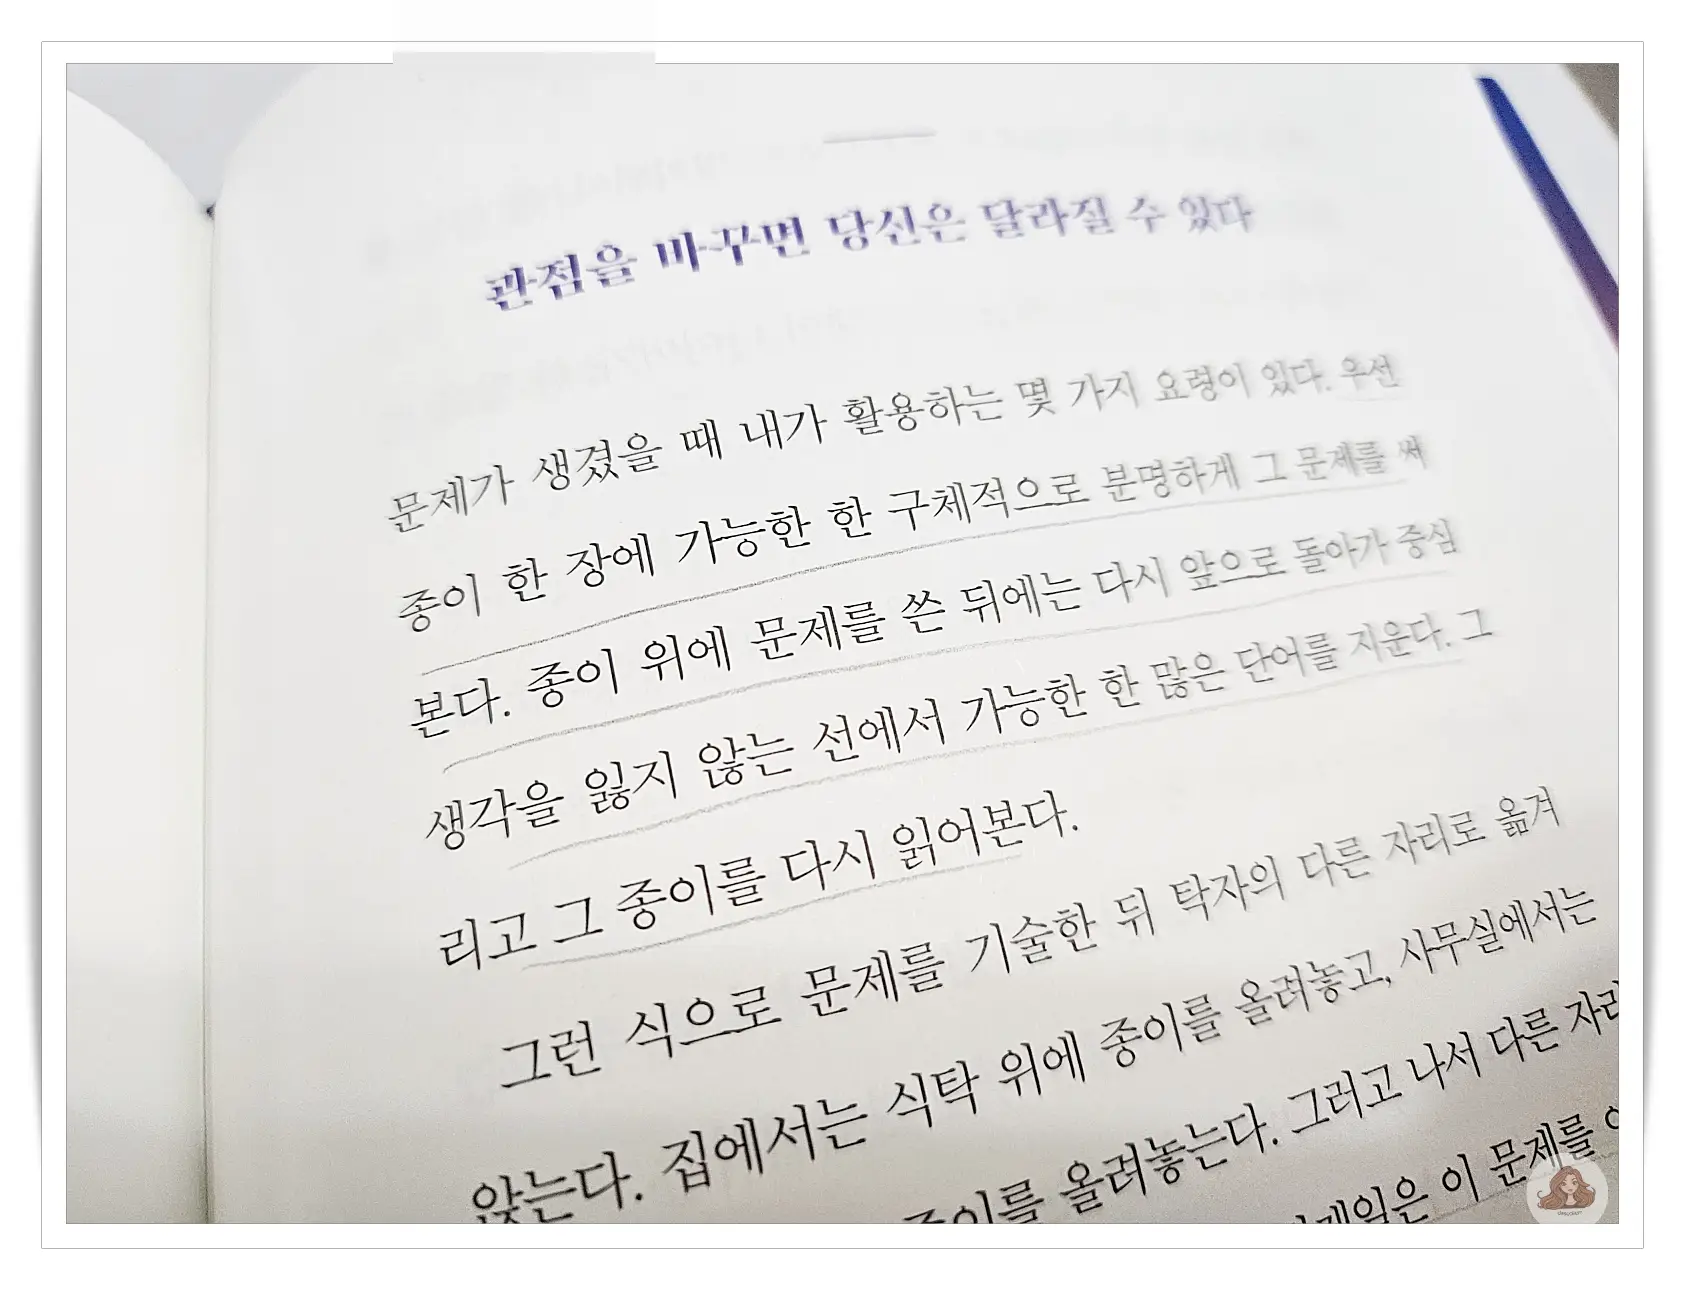 관점을 바꾸면 당신은 달라질 수 있다
문제가 생겼을 때 내가 활용하는 몇 가지 요령이 있다. 우선
종이 한 장에 가능한 한 구체적으로 분명하게 그 문제를 써
본다. 종이 위에 문제를 쓴 뒤에는 다시 앞으로 돌아가 중심
생각을 잃지 않는 선에서 가능한 한 많은 단어를 지운다. 그
리고 그 종이를 다시 읽어본다.
그런 식으로 문제를 기술한 뒤 탁자의 다른 자리로 옮겨
앉는다. 집에서는 식탁 위에 종이를 올려놓고, 사무실에서는
종이를 올려놓는다. 그러고 나서 다른 자리
은 이 문제를